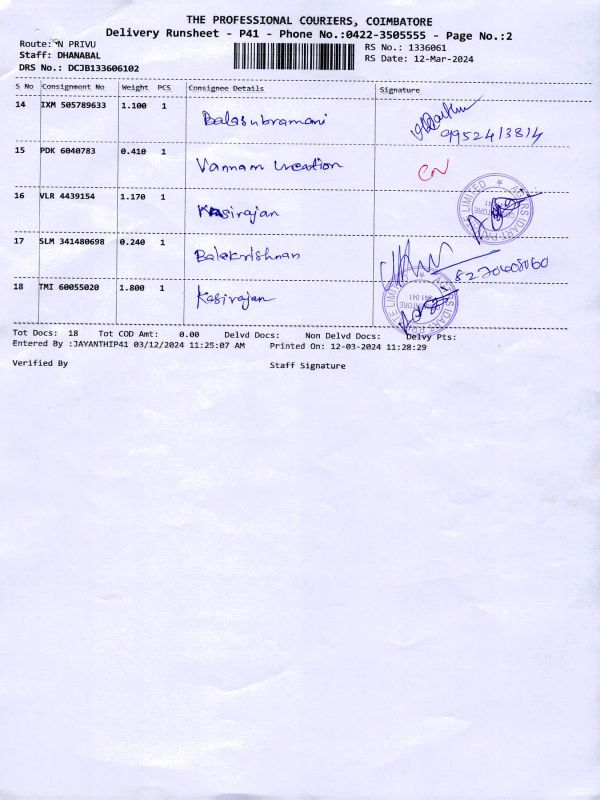 THE PROFESSIONAL COURIERS, COIMBATORE
Delivery Runsheet - P41 - Phone No.:0422-3505555 - Page No.:2
Route: N PRIVU
RS No.: 1336061
Staff: DHANABAL
RS Date: 12-Mar-2024
DRS No.: DCJB133606102
S No Consignment No Weight PCS Consignee Details Signature
14 IXM 505789633 1.100 1 Balasubramani
9952413814
15 PDK 6040783 0.410 1 Vannam creation CN
16 VLR 4439154 1.170 1 Kasirajan
17 SLM 341480698 0.240 1 Balakrishnan
8270608060
18 TMI 60055020 1.800 1 Kasirajan
Tot Docs: 18 Tot COD Amt: 0.00 Delvd Docs: Non Delvd Docs: Delvy Pts:
Entered By :JAYANTHIP41 03/12/2024 11:25:07 AM Printed On: 12-03-2024 11:28:29
Verified By Staff Signature